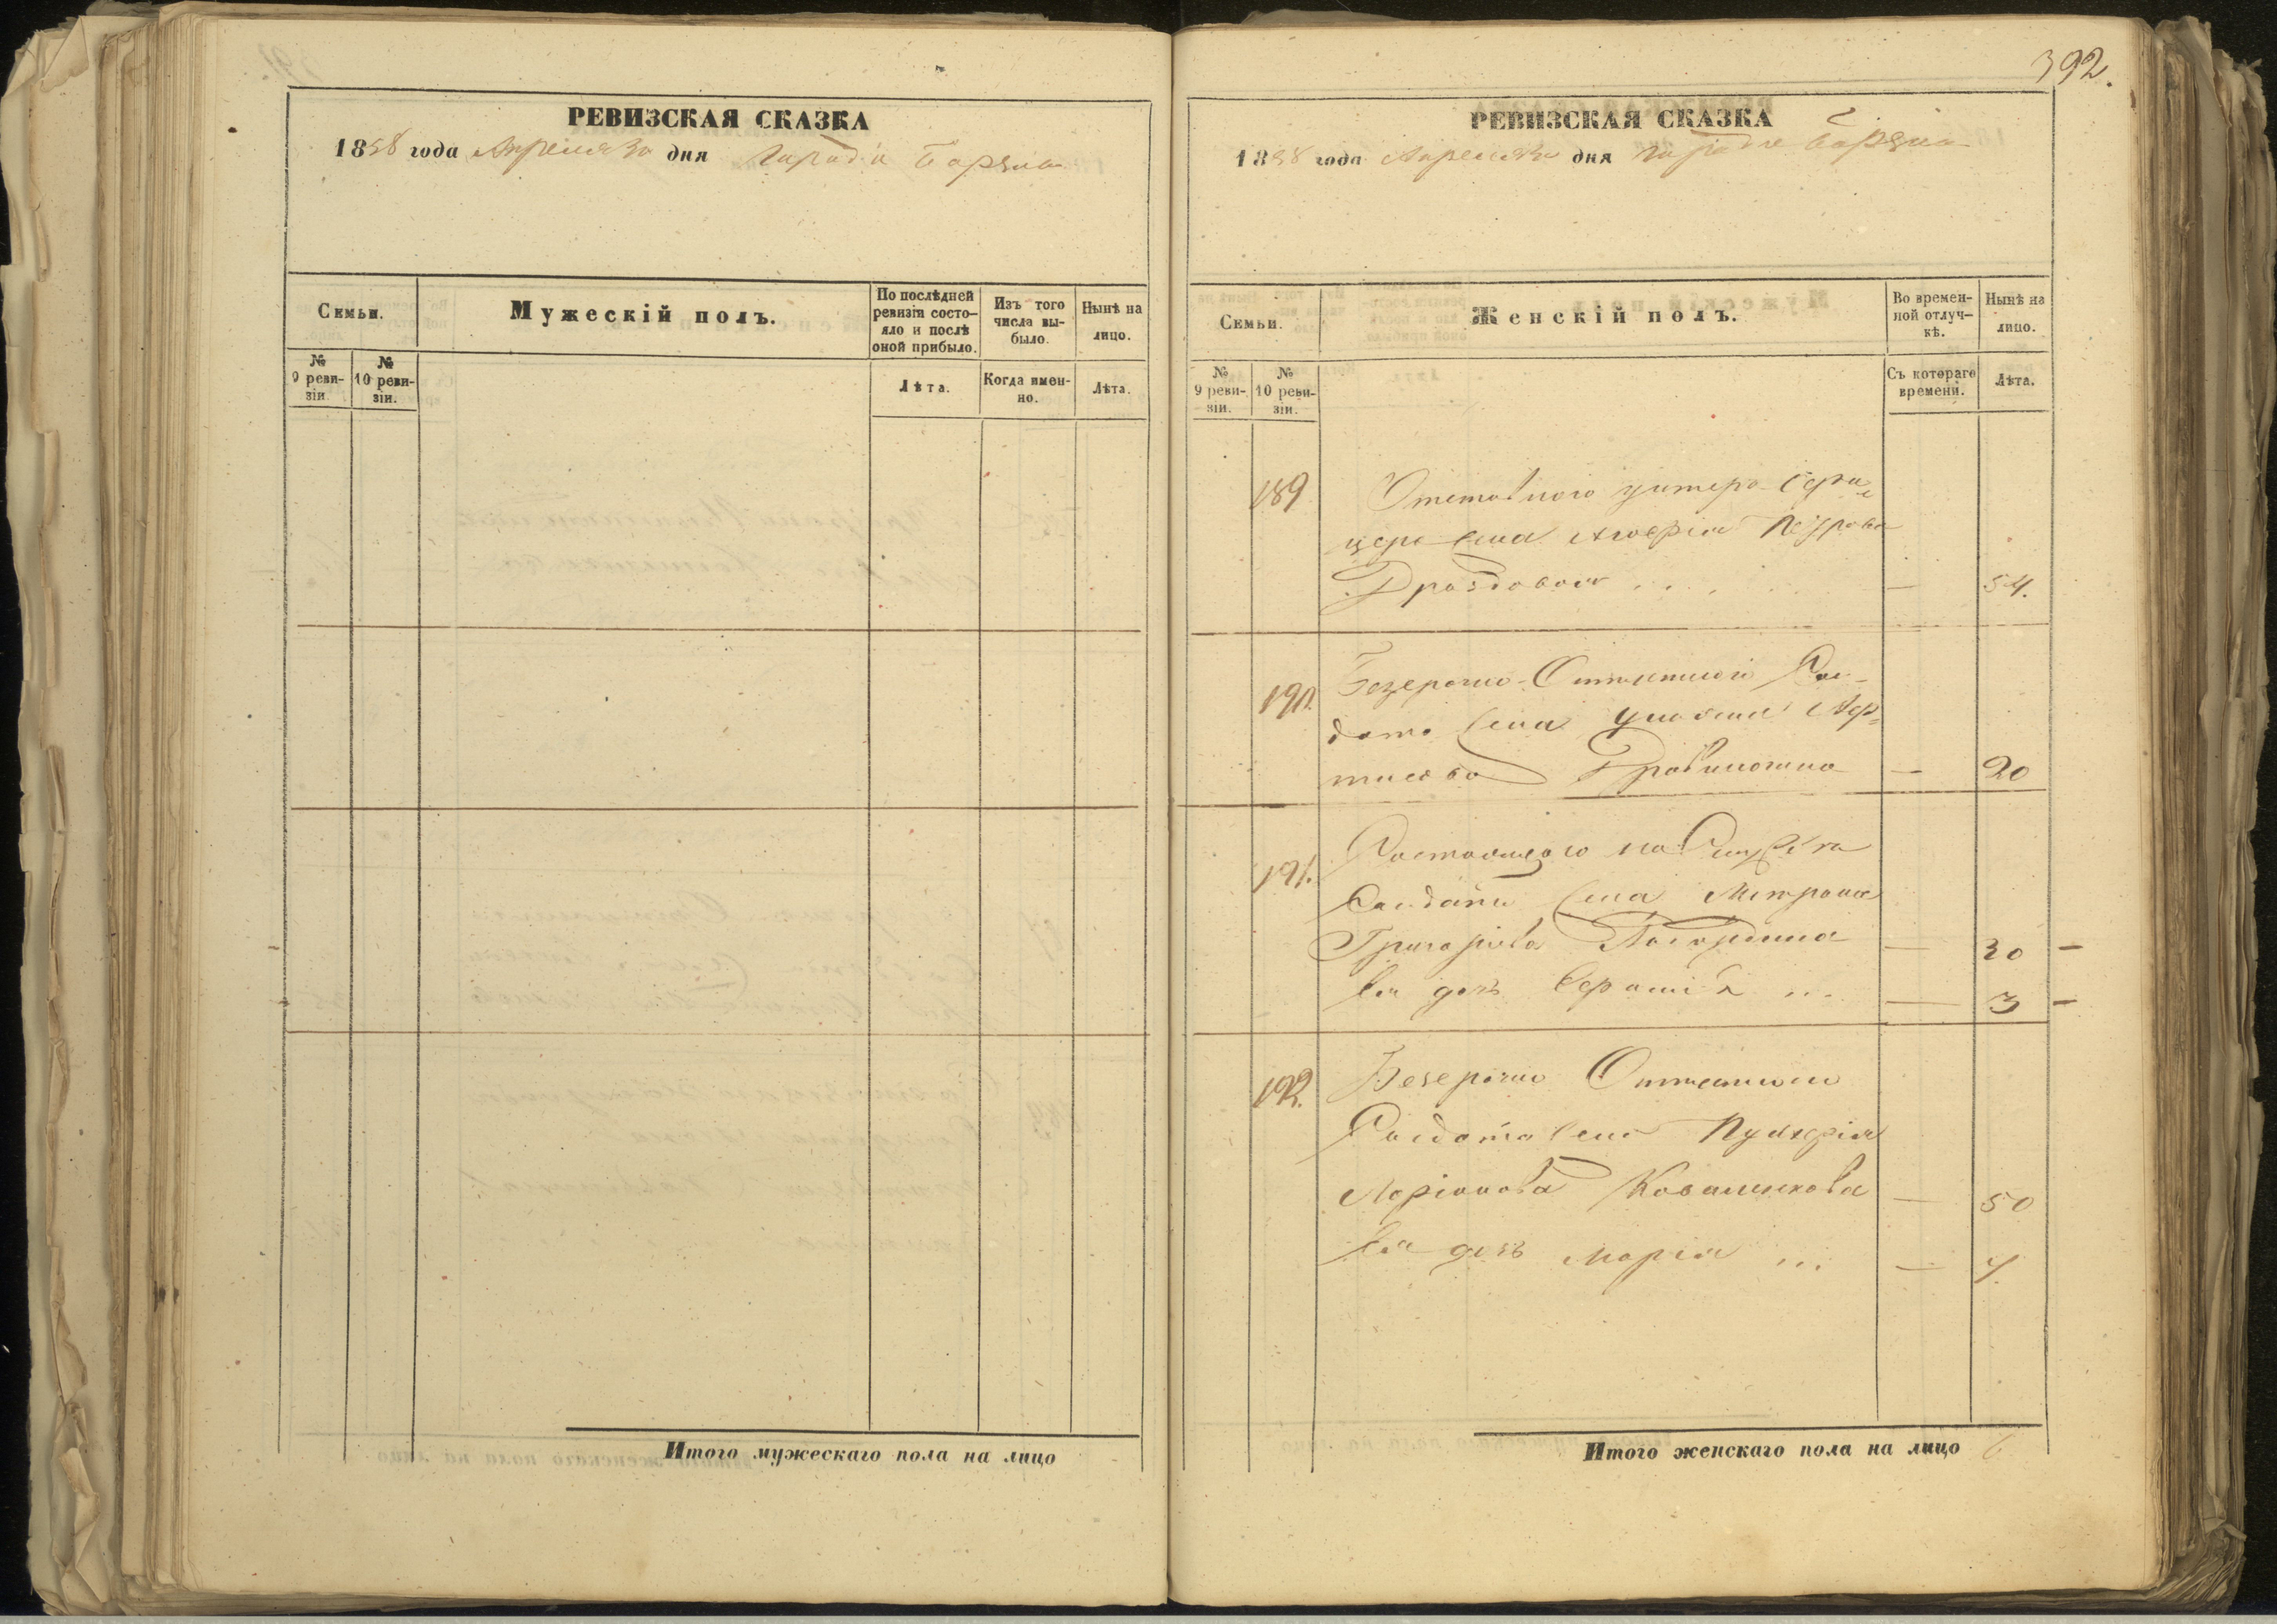 РЕВИЗСКАЯ СКАЗКА
1858 года Апреля 30 дня города Борзна
Семьи.
Мужескій полъ.
По послѣдней ревизіи состо-
яло и послѣ
оной прибыло.
Изъ того
числа вы-
было.
Нынѣ на
лицо.
№
9 реви-
зіи.
№
10 реви-
зіи.
Лѣта.
Когда имен-
но.
Лѣта.
Итого мужескаго пола на лицо
392.
РЕВИЗСКАЯ СКАЗКА
1858 года Апреля 30 дня города Борзна
Семьи.
Женскій полъ.
Во времен-
ной отлуч-
кѣ.
Нынѣ на
лицо.
№
9 реви-
зіи.
№
10 реви-
зіи.
Съ котораго
времени.
Лѣта.
189 Отставного унтеръ офи-
цера жена Петрова
Дроздовая . . . — 54.
190. Безсрочно-Отпускного Сол-
дата жена Ульяна
— 20
191. Состоящаго на Службѣ
Солдата жена Матрона
Григорьева — 30 —
Ея дочь ... — 3 —
192. Безсрочно Отпускного
Солдата жена Пулхерія
Ларіонова Коваленкова — 50
Ея дочь Марія ... — 7.
Итого женскаго пола на лицо 6